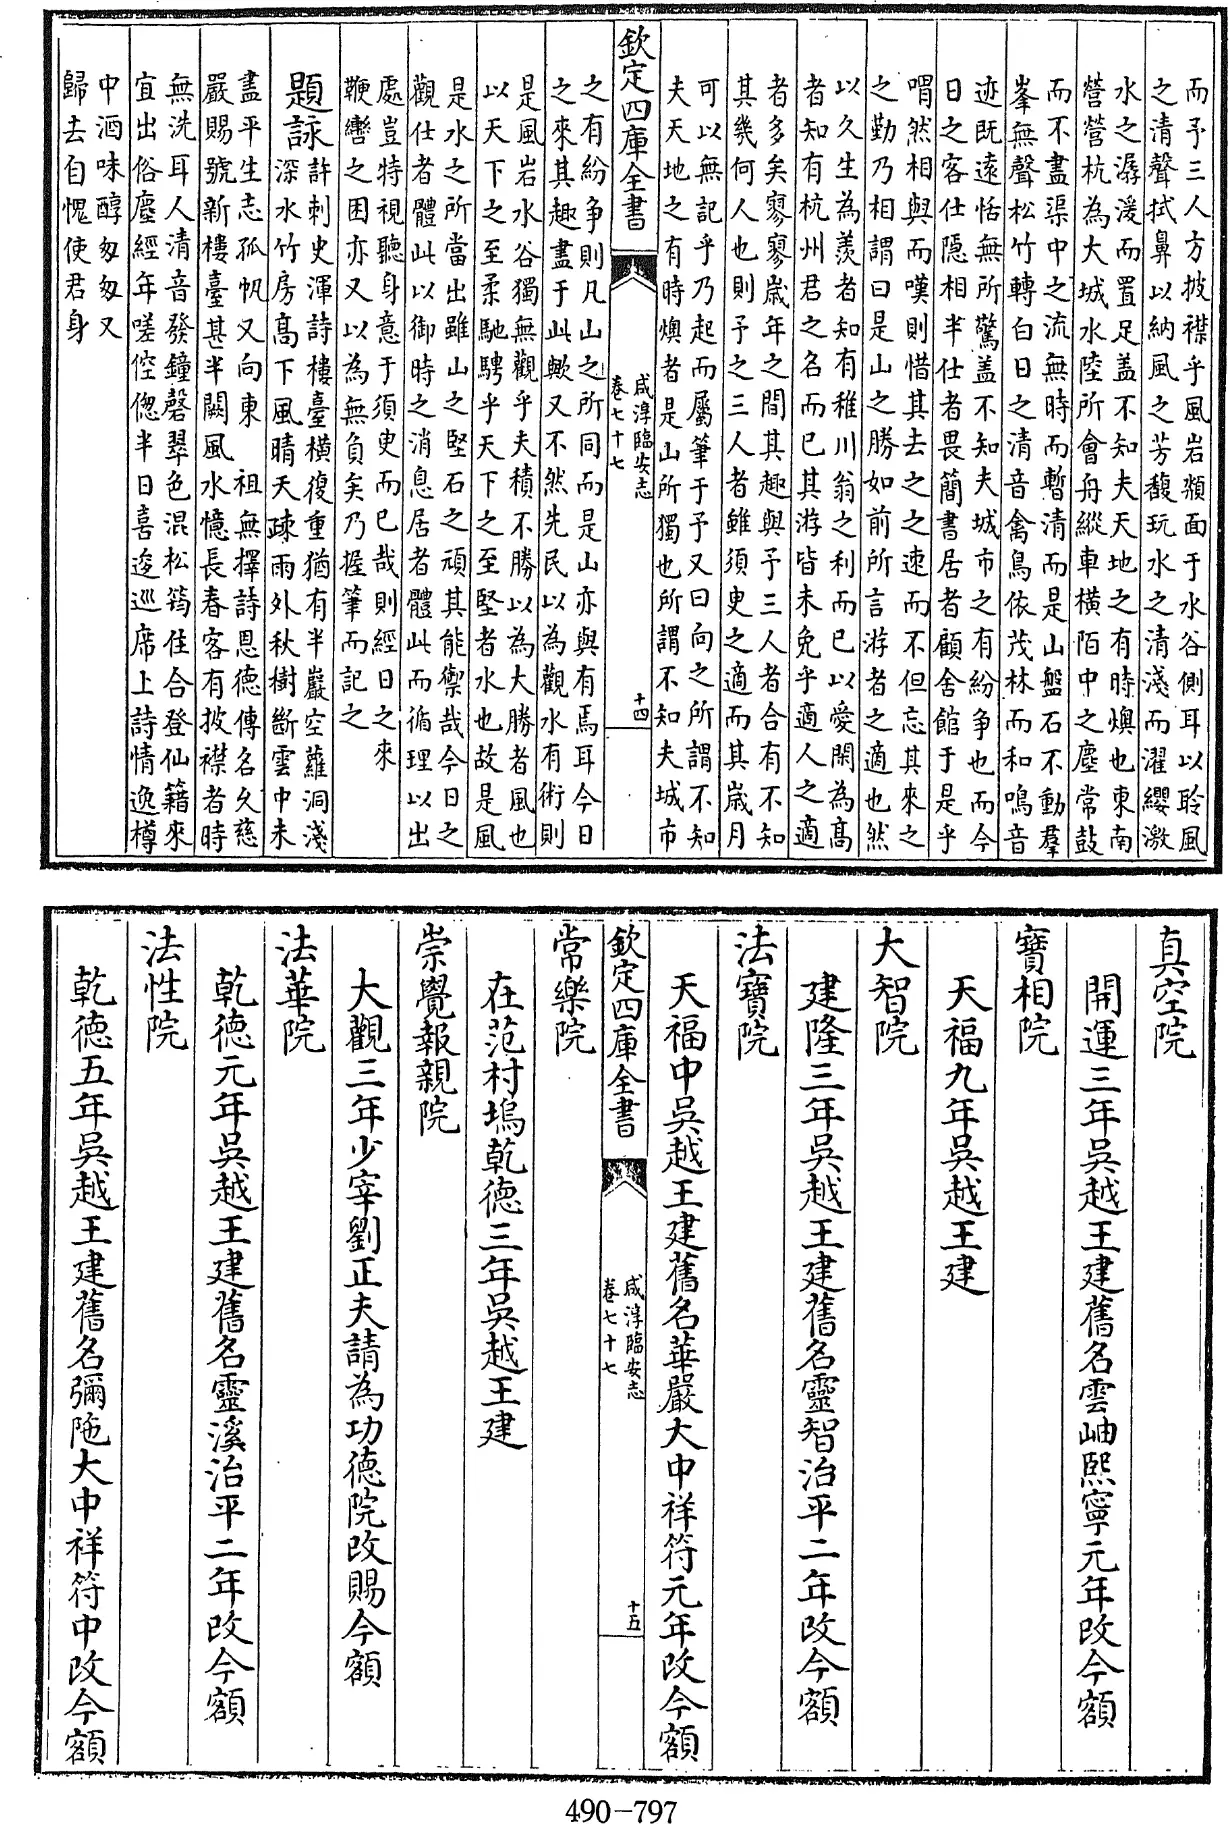 而予三人方披襟乎風岩頮面于水谷側耳以聆風
之清聲拭鼻以納風之芳馥玩水之清淺而濯纓激
水之潺湲而置足盖不知夫天地之有時燠也東南
營營杭為大城水陸所會舟縱車橫陌中之塵常鼓
而不盡渠中之流無時而暫清而是山盤石不動羣
峯無聲松竹轉白日之清音禽鳥依茂林而和鳴音
迹既遠恬無所驚盖不知夫城市之有紛争也而今
日之客仕隱相半仕者畏簡書居者顧舍館于是乎
喟然相與而嘆則惜其去之之速而不但忘其來之
之勤乃相謂曰是山之勝如前所言游者之適也然
以久生為羨者知有稚川翁之利而已以愛閑為髙
者知有杭州君之名而已其游皆未免乎適人之適
者多矣寥寥歲年之間其趣與予三人者合有不知
其幾何人也則予之三人者雖須臾之適而其歲月
可以無記乎乃起而屬筆于予又曰向之所謂不知
夫天地之有時燠者是山所獨也所謂不知夫城市
欽定四庫全書
咸淳臨安志
卷七十七
十四
之有紛争則凡山之所同而是山亦與有焉耳今日
之來其趣盡于此歟又不然先民以為觀水有術則
是風岩水谷獨無觀乎夫積不勝以為大勝者風也
以天下之至柔馳騁乎天下之至堅者水也故是風
是水之所當出雖山之堅石之頑其能禦哉今日之
觀仕者體此以御時之消息居者體此而循理以出
處豈特視聽身意于須臾而已哉則經日之來
鞭轡之困亦又以為無負矣乃握筆而記之
題詠
許刺史渾詩樓臺橫復重猶有半巖空蘿洞淺
深水竹房髙下風晴天疎雨外秋樹斷雲中未
盡平生志孤帆又向東　祖無擇詩恩德傳名久慈
嚴賜號新樓臺甚半闕風水憶長春客有披襟者時
無洗耳人清音發鐘磬翠色混松筠住合登仙籍來
宜出俗塵經年嗟倥偬半日喜逡巡席上詩情逸樽
中酒味醇匆匆又
歸去自愧使君身
真空院
開運三年吳越王建舊名雲岫熙寧元年改今額
寶相院
天福九年吳越王建
大智院
建隆三年吳越王建舊名靈智治平二年改今額
法寶院
天福中吳越王建舊名華嚴大中祥符元年改今額
欽定四庫全書
咸淳臨安志
卷七十七
十五
常樂院
在范村塢乾德三年吳越王建
崇覺報親院
大觀三年少宰劉正夫請為功德院改賜今額
法華院
乾德元年吳越王建舊名靈溪治平二年改今額
法性院
乾德五年吳越王建舊名彌陁大中祥符中改今額
490-797